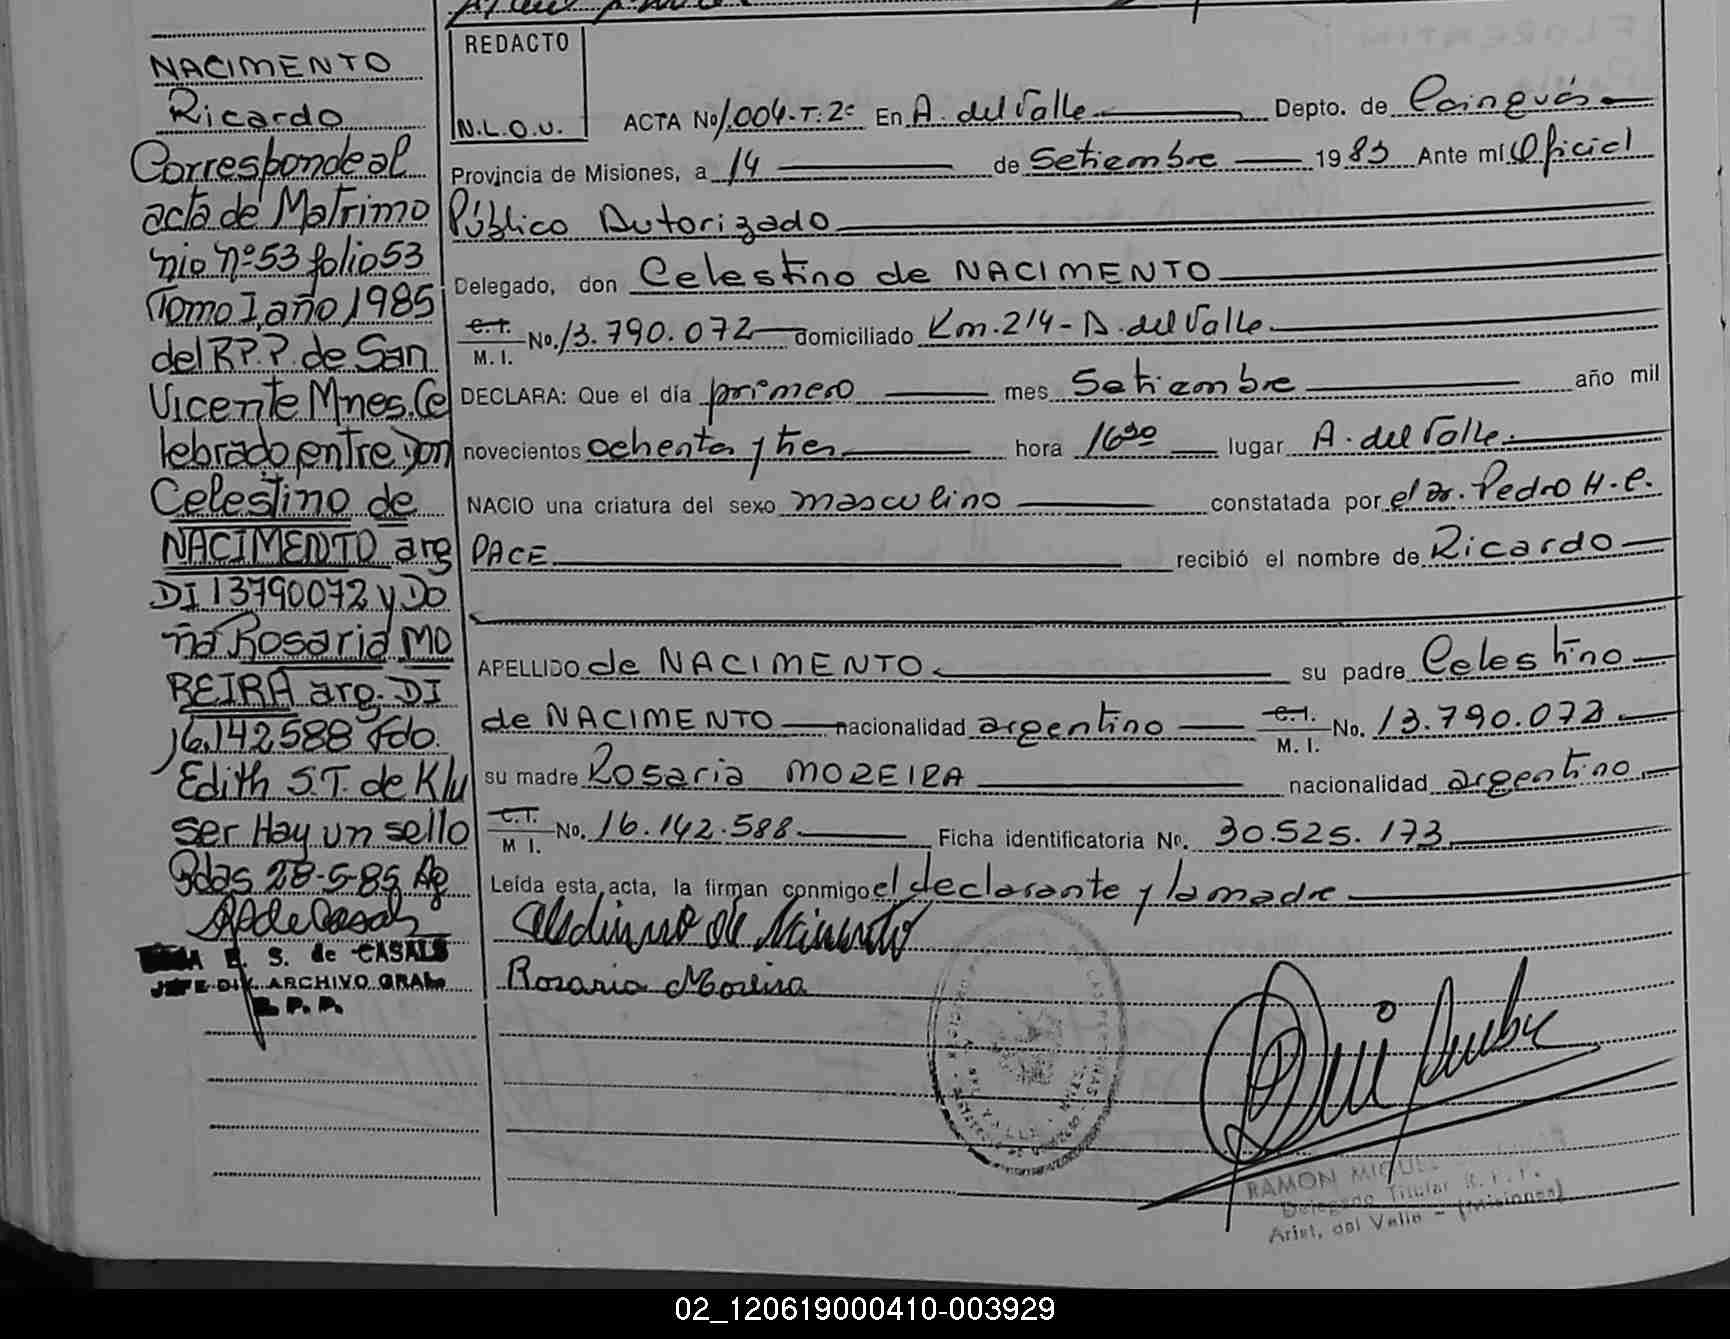 NACIMENTO
Ricardo
Corresponde al
acta de Matrimo
nio nº 53 folio 53
Tomo I, año 1985
del R.P.P. de San
Vicente Mnes. Ce
lebrado entre Don
Celestino de
NACIMENTO arg
DI 13790072 y Do
ña Rosaria MO
REIRA arg. DI
16.142.588 Fdo.
Edith S.T. de Klu
ser Hay un sello
Pdas 28-5-85
S. de CASALS
JEFE DIV. ARCHIVO GRAL.
R. P. P.
REDACTO
N.L.O.U.
ACTA No 1.004-T:2º En A. del Valle Depto. de Cainguás
Provincia de Misiones, a 14 de Setiembre 1983 Ante mí Oficial
Público Autorizado
Delegado, don Celestino de NACIMENTO
C.I. M. I. No. 13.790.072 domiciliado Km. 214 - A. del Valle
DECLARA: Que el día primero mes Setiembre año mil
novecientos ochenta y tres hora 16³⁰ lugar A. del Valle
NACIO una criatura del sexo masculino constatada por el Dr. Pedro H. C.
PACE recibió el nombre de Ricardo
APELLIDO de NACIMENTO su padre Celestino
de NACIMENTO nacionalidad argentino C.I. M. I. No. 13.790.072
su madre Rosaria MOREIRA nacionalidad argentino
C.I. M I. No. 16.142.588 Ficha identificatoria No. 30.525.173
Leída esta acta, la firman conmigo el declarante y la madre
Rosaria Moreira
RAMON MIGUEL
Delegado Titular R. P. P.
Arist. del Valle - (Misiones)
02_120619000410-003929